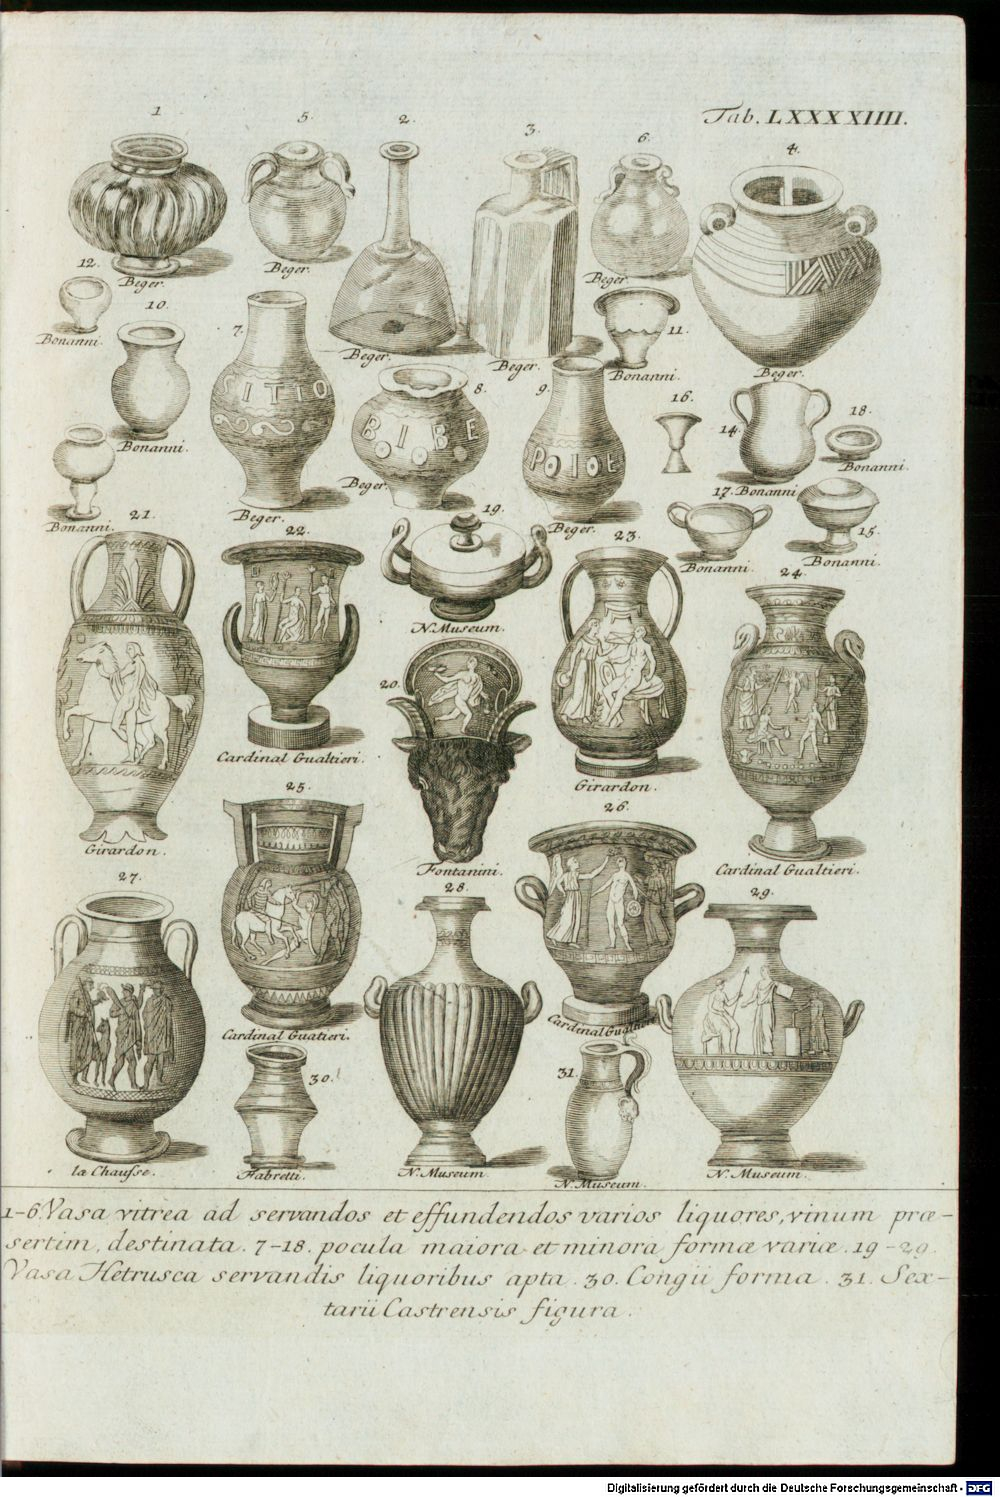 Tab. LXXXXIIII.
1 5. 2. 3. 6. 4.
12. Beger. Beger. Beger.
Bonanni. 10. 7. Beger. Beger. 11. Bonanni. Beger.
SITIO 8. 9. 16. 14. 18.
BIBE
Bonanni. Beger. POIOE 17. Bonanni Bonanni.
Bonanni. 21. Beger. 22. 19. Beger. 23. Bonanni. 15. Bonanni.
24.
N. Museum.
20.
Cardinal Gualtieri. Girardon.
25. 26.
Girardon. Fontanini. Cardinal Gualtieri.
27. 28. 29.
Cardinal Guatieri. Cardinal Gualtieri
30. 31.
la Chausse. Fabretti. N. Museum. N. Museum. N. Museum.
1-6. Vasa vitrea ad servandos et effundendos varios liquores, vinum præ-
sertim, destinata. 7-18. pocula maiora et minora formæ variæ. 19-29.
Vasa Hetrusca servandis liquoribus apta. 30. Congii forma. 31. Sex-
tarii Castrensis figura.
Digitalisierung gefördert durch die Deutsche Forschungsgemeinschaft - DFG